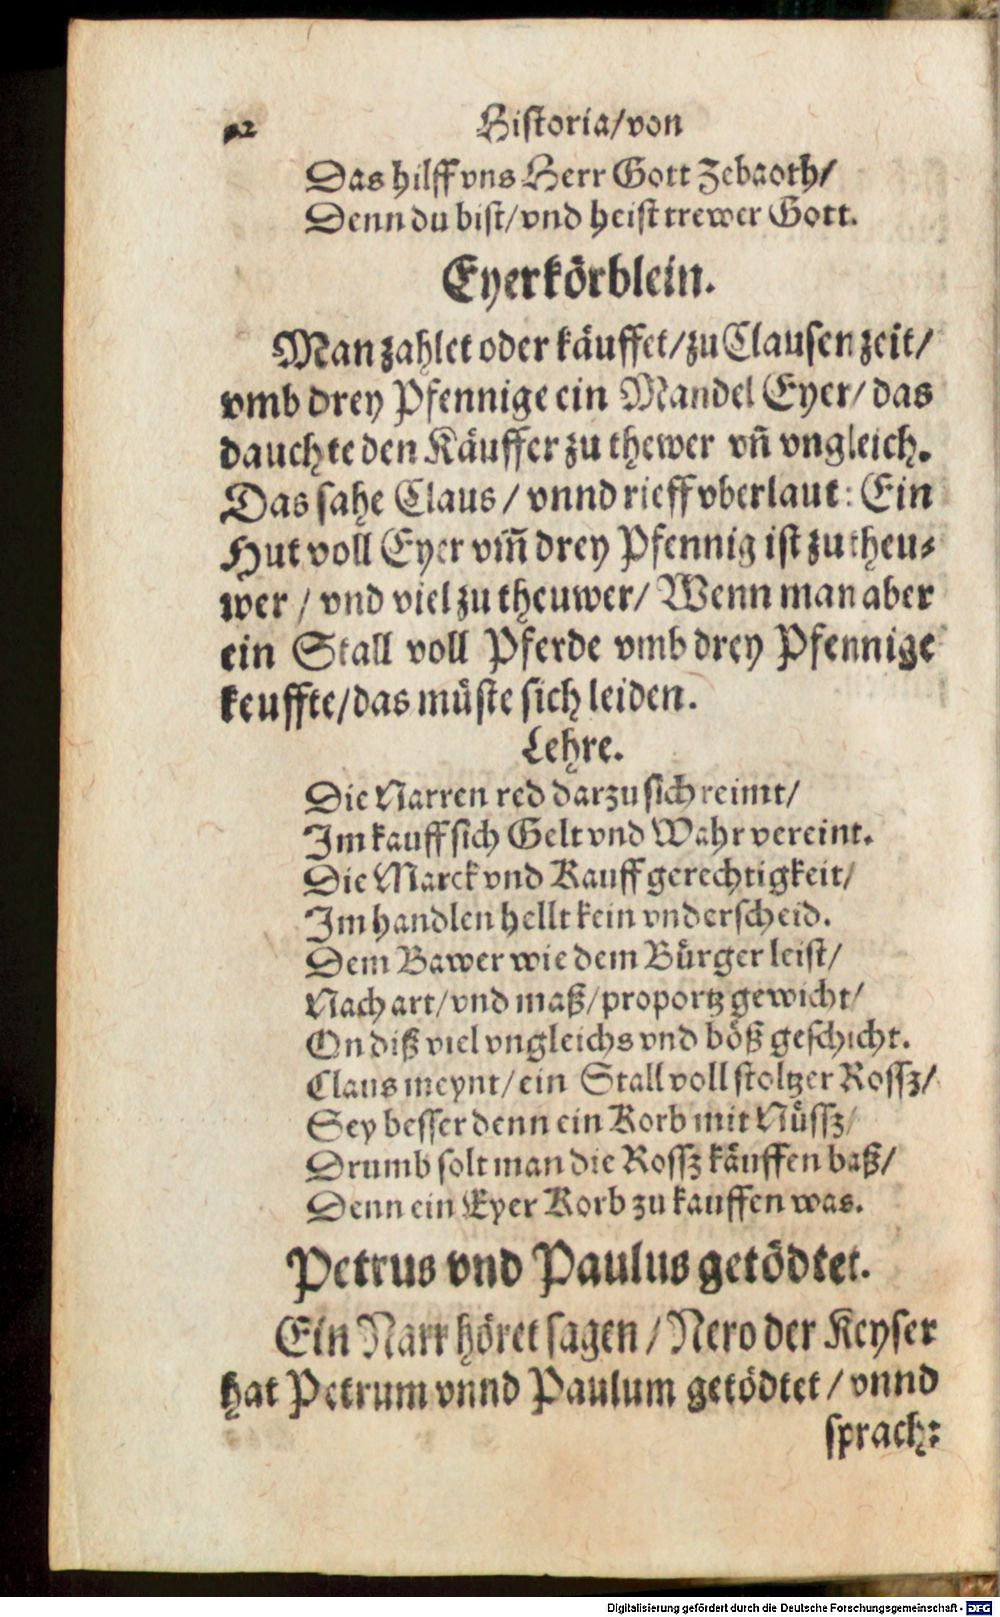 Historia/von
Das hilff vns Herr Gott Zebaoth/
Denn du bist/vnd heist trewer Gott.
Eyerkörblein.
Man zahlet oder käuffet/zu Clausen zeit/
vmb drey Pfennige ein Mandel Eyer/ das
dauchte den Käuffer zu thewer vñ vngleich.
Das sahe Claus / vnnd rieff vberlaut: Ein
Hut voll Eyer vm̃ drey Pfennig ist zu theu-
wer / vnd viel zu theuwer/ Wenn man aber
ein Stall voll Pferde vmb drey Pfennige
keuffte/das müste sich leiden.
Lehre.
Die Narren red darzu sich reimt/
Im kauff sich Gelt vnd Wahr vereint.
Die Marck vnd Kauff gerechtigkeit/
Im handlen hellt kein vnderscheid.
Dem Bawer wie dem Bürger leist/
Nach art/vnd maß/proportz gewicht/
On diß viel vngleichs vnd böß geschicht.
Claus meynt/ein Stall voll stoltzer Rossz/
Sey besser denn ein Korb mit Nüssz/
Drumb solt man die Rossz käuffen baß/
Denn ein Eyer Korb zu kauffen was.
Petrus vnd Paulus getödtet.
Ein Narr höret sagen / Nero der Keyser
hat Petrum vnnd Paulum getödtet / vnnd
sprach:
Digitalisierung gefördert durch die Deutsche Forschungsgemeinschaft - DFG